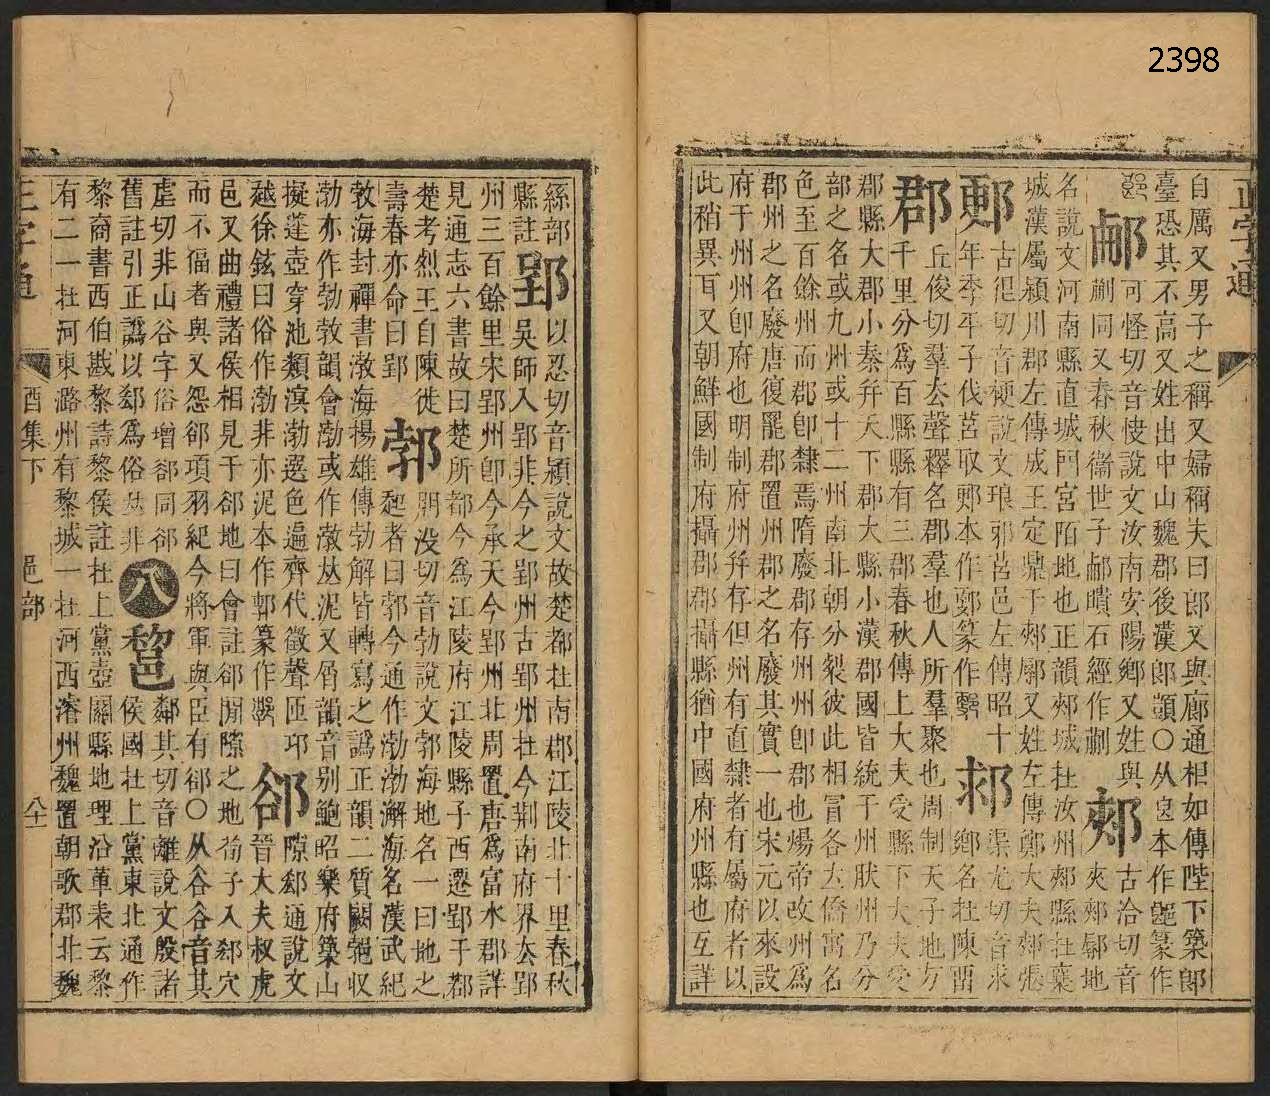 2398
正字通
自厲又男子之稱又婦稱夫曰郎又與廊通相如傳陛下築郎
臺恐其不高又姓出中山魏郡後漢郎顗○从㝗本作
篆作
郙可怪切音快說文汝南安陽鄉又姓與
蒯同又春秋衞世子蒯聵石經作蒯
郟古洽切音
夾郟鄏地
名說文河南縣直城門宮陌地也正韻郟城在汝州郟縣在葉
城漢屬潁川郡左傳成王定鼎于郟鄏又姓左傳鄭大夫郟張
郠古很切音梗說文琅邪莒邑左傳昭十
年季平子伐莒取郠本作
篆作
郰渠尤切音求
鄉名在陳留
郡丘俊切羣去聲釋名郡羣也人所羣聚也周制天子地方
千里分爲百縣縣有三郡春秋傳上大夫受縣下大夫受
郡縣大郡小秦幷天下郡大縣小漢郡國皆統于州肰州乃分
部之名或九州或十二州南北朝分裂彼此相冒各立僑寓名
色至百餘州而郡卽隸焉隋廢郡存州州卽郡也煬帝改州爲
郡州之名廢唐復罷郡置州郡之名廢其實一也宋元以來設
府于州州卽府也明制府州幷存但州有直隸者有屬府者以
此稍異耳又朝鮮國制府攝郡郡攝縣猶中國府州縣也互詳
縣部
郢以忍切音潁說文故楚都在南郡江陵北十里春秋
縣註
吳師入郢非今之郢州古郢州在今荆南府界去郢
州三百餘里宋郢州卽今承天今郢州北周置唐爲富水郡詳
見通志六書故曰楚所都今爲江陵府江陵縣子西遷郢于鄀
楚考烈王自陳徙
壽春亦命曰郢
郣朋没切音勃說文郣海地名一曰地之
起者曰郣今通作渤渤澥海名漢武紀
敦海封禪書渤海揚雄傳勃解皆轉寫之譌正韻二質闕郣収
渤亦作勃敦韻會渤或作潡𠀤泥又屑韻音别鮑昭樂府築山
擬蓬壺穿池類溟渤選色遍齊代徵聲匝邛
郤隙郄通說文
越徐鉉曰俗作渤非亦泥本作郣篆作
晉大夫权虎
邑又曲禮諸侯相見于郤地曰會註郤閒隙之地荀子入郄穴
而不偪者與又怨郤項羽紀今將軍與臣有郤○从谷谷音其
虐切非山谷字俗增郤同郤
舊註引正譌以郄爲俗𠀤非
八
䣓鄰其切音離說文殷諸
侯國在上黨東北通作
黎商書西伯戡黎詩黎侯註在上黨壺關縣地理沿革表云黎
有二一在河東潞州有黎城一在河西濬州魏置朝歌郡北魏
正字通
酉集下
邑部
八十一